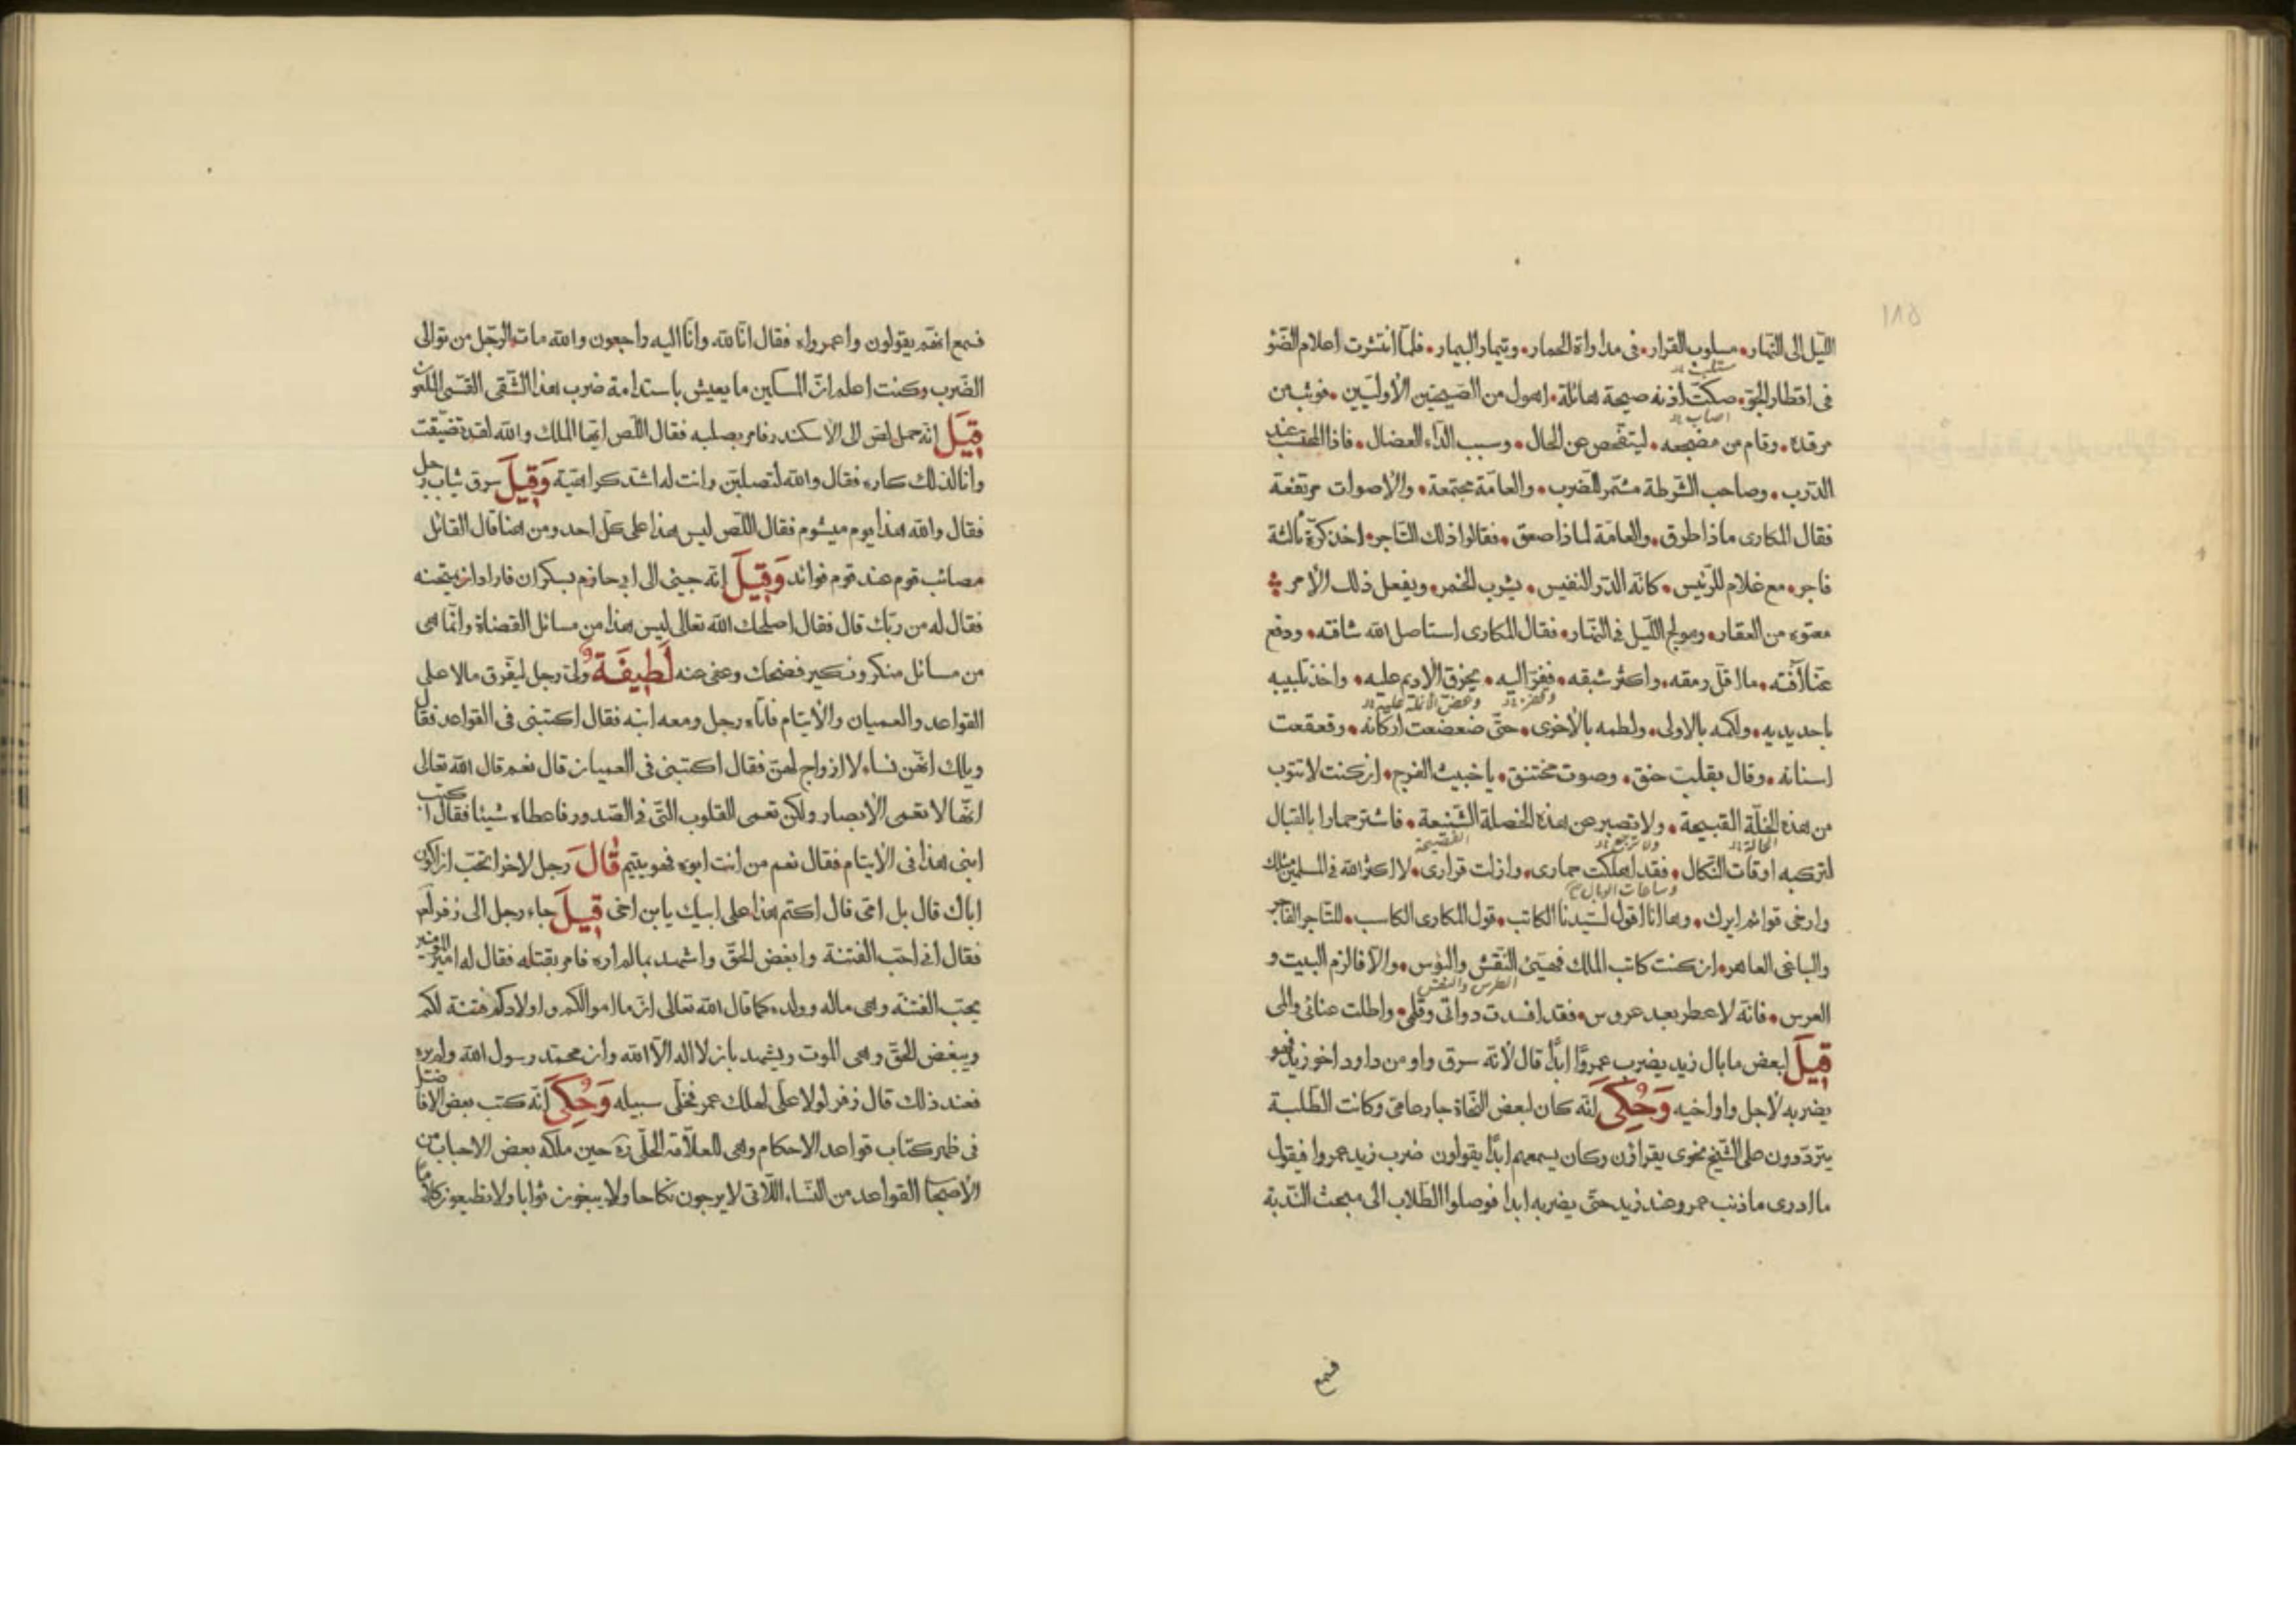 الليل الى النهار، مسلوب القرار، فى مداواة الحمار، وتيمار البيمار، فلما انتشرت اعلام الضو
فى اقطار الجو، صكت اذنه صيحة هائلة، اهول من الصيحتين الأوليين، فوثب من
مرقده، وقام من مضجعه، ليتفحص عن الحال، وسبب الداء العضال، فاذا المحتسب عند
الدرب، وصاحب الشرطة مشمر للضرب، والعامة مجتمعة، والاصوات مرتفعة
فقال المكارى ماذا طرق، والعامة لماذا صعق، فقالوا ذلك التاجر، اخذ كرة ثالثة
فاجر، مع غلام للرئيس، كانه الدر النفيس، يشرب الخمر، ويفعل ذلك الأمر
معتوه من العقار، ومولج الليل فى النهار، فقال المكارى استاصل الله شافته، ودفع
عنا آفته، ما اقل رمقه، واكثر شبقه، ففر اليه، يخرق الأدم عليه، واخذ تلبيبه
باحد يديه، ولكمه بالاولى، ولطمه بالأخرى، حتى ضعضعت اركانه، وقعقعت
اسنانه، وقال بقلب حنق، وصوت مختنق، يا خبيث الفرج، ان كنت لا تتوب
من هذه الخلة القبيحة، ولا تصبر عن هذه الخصلة الشنيعة، فاشتر حمارا بالقبال
لتركبه اوقات النكال، فقد اهلكت حمارى، وازلت قرارى، لا اكثر الله فى المسلمين مثلك
وارخى قوائم ايرك، وها انا اقول لسيدنا الكاتب، قول المكارى الكاسب، للتاجر الفاجر
والباغى العاهر، ان كنت كاتب الملك فهيئ النقش والنوس، والا فالزم البيت و
العرس، فانه لا عطر بعد عروس، فقد افسدت دواتى وقلمى، واطلت عنائى والمى
قيل لبعض ما بال زيد يضرب عمروا ابدا قال لأنه سرق واو من داود اخو زيد فهو
يضربه لأجل واو اخيه وحكى انه كان لبعض النحاة جار عامى وكانت الطلبة
يترددون على الشيخ نحوى يقراؤن وكان يسمعهم ابدا يقولون ضرب زيد عمروا فيقول
ما ادرى ما ذنب عمرو عند زيد حتى يضربه ابدا فوصلوا الطلاب الى مبحث الندبة
فسمع
فسمع انهم يقولون واعمرواه فقال انا لله وانا اليه راجعون والله مات الرجل من توالى
الضرب وكنت اعلم ان المسكين ما يعيش باستدامة ضرب هذا الشقى القسى الملعون
قيل انه حمل لص الى الاسكندر فامر بصلبه فقال اللص ايها الملك والله لقد تضيقت
وانا لذلك كاره فقال والله لتصلبن وانت له اشد كراهية وقيل سرق ثياب رجل
فقال والله هذا يوم ميشوم فقال اللص ليس هذا على كل احد ومن هنا قال القائل
مصائب قوم عند قوم فوائد وقيل انه جيئ الى ابى حازم بسكران فاراد ان يمتحنه
فقال له من ربك قال فقال اصلحك الله تعالى ليس هذا من مسائل القضاة وانما هى
من مسائل منكر ونكير فضحك وعفى عنه لطيفة ولى رجل ليفرق مالا على
القواعد والعميان والأيتام فاتاه رجل ومعه ابنه فقال اكتبنى فى القواعد فقال
ويلك انهن نساء لا ازواج لهن فقال اكتبنى فى العميان قال نعم قال الله تعالى
انها لا تعمى الأبصار ولكن تعمى القلوب التى فى الصدور فاعطاه شيئا فقال اكتب
ابنى هذا فى الأيتام فقال نعم من انت ابوه فهو يتيم قال رجل لاخر اتحب ان اكون
اباك قال بل امى قال اكتم هذا على ابيك يا بن اخى قيل جاء رجل الى زفر
فقال انى احب الفتنة وابغض الحق واشهد بما لم اره فامر بقتله فقال له امير المؤمنين
يحب الفتنة وهى ماله وولده كما قال الله تعالى انما اموالكم واولادكم فتنة لكم
ويبغض الحق وهى الموت ويشهد بان لا اله الا الله وان محمد رسول الله ولم يره
فعند ذلك قال زفر لولا على لهلك عمر فخلى سبيله وحكى انه كتب بعض الافاضل
فى ظهر كتاب قواعد الاحكام وهى للعلامة الحلى ره حين ملكه بعض الاحباب من
الأصحاب القواعد من النساء اللاتى لا يرجون نكاحا ولا يبغون ثوابا ولا تظيعون